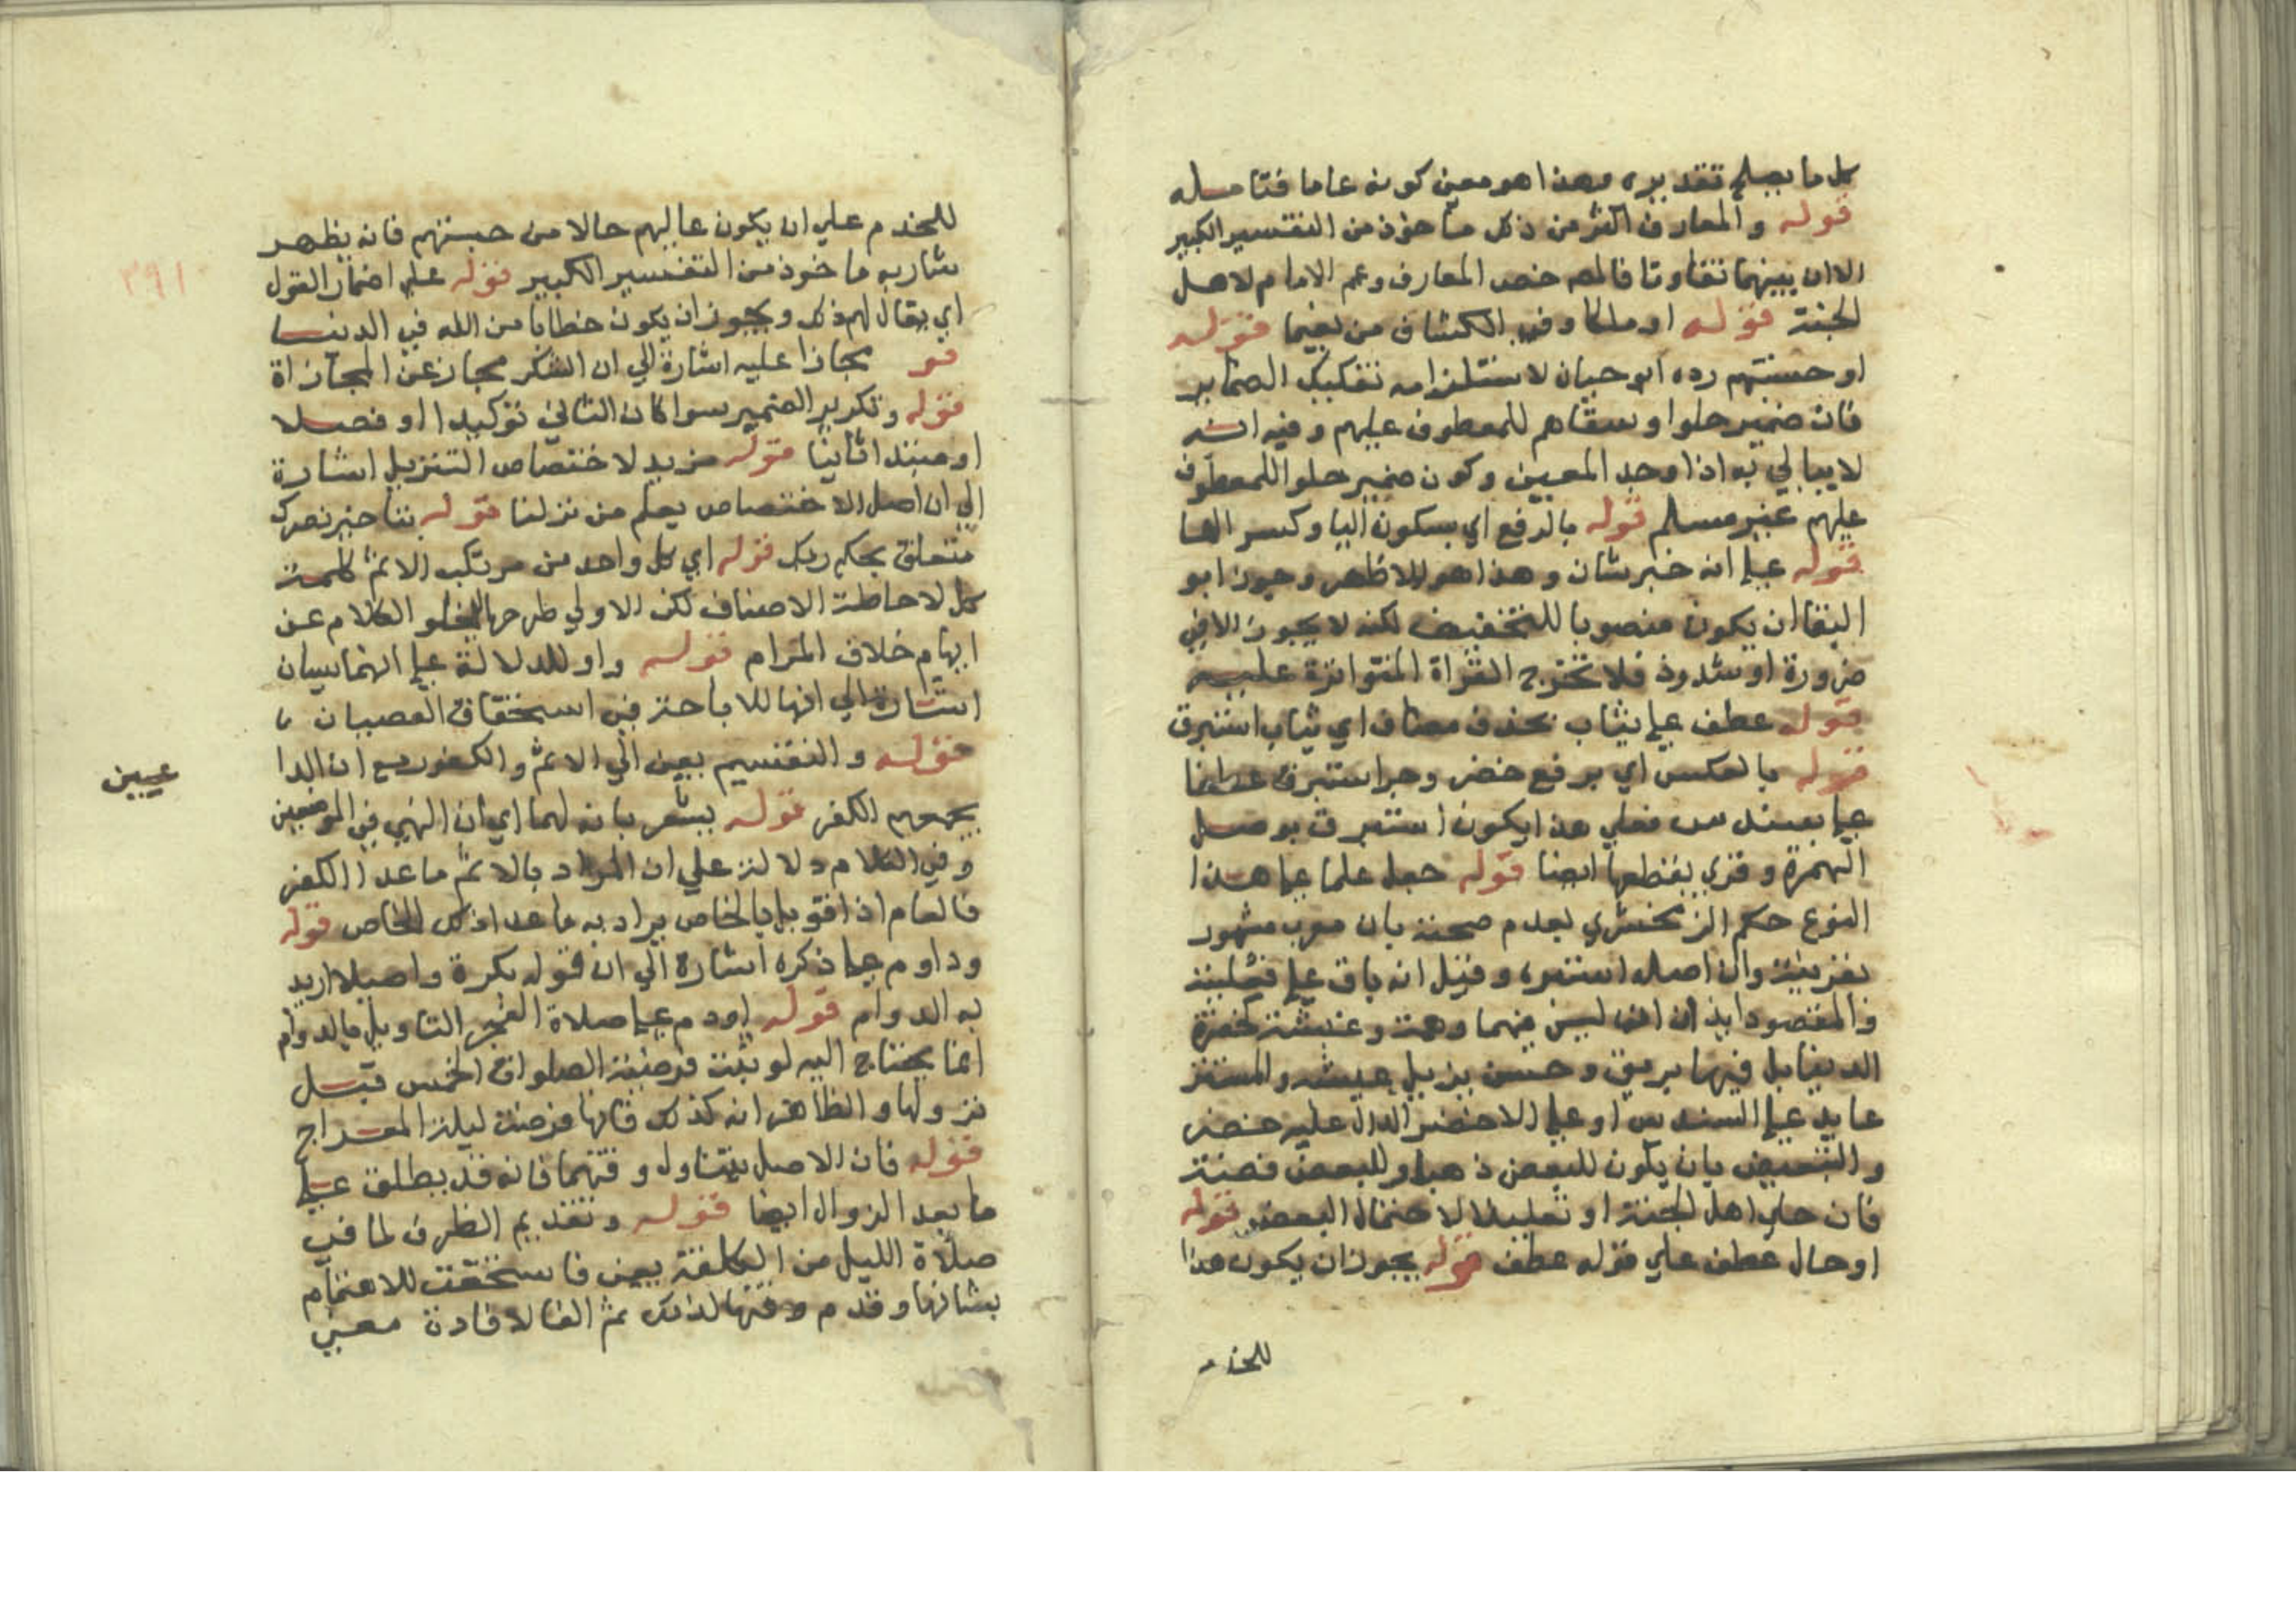 كل ما يصلح تقديره وهذا هو معنى كونه عاما فتامله
قوله والمعارف اكثر من ذلك ماخوذ من التفسير الكبير
الا ان بينهما تفاوتا فالمص خص المعارف وعم الامام لاهل
الجنة قوله او ملكا وفي الكشاف من نعيما قوله
او حسبتهم رده ابو حيان لاستلزامه تفكيك الضماير
فان ضمير حلوا وسقاهم للمعطوف عليهم وفيه انه
لا يبالي به اذا وجد المعين وكون ضمير حلوا للمعطوف
عليهم غير مسلم قوله بالرفع اي بسكون اليا وكسر الها
قوله على انه خبر شان وهذا هو الاظهر وجوز ابو
البقا ان يكون منصوبا للتخفيف لكنه لا يجوز الا في
ضرورة او شذوذ فلا تخرج القراة المتواترة عليه
قوله عطف على ثياب بحذف مضاف اي ثياب استبرق
قوله بالعكس اي برفع خضر وجر استبرق عطفا
على سندس فعلي هذا يكون استبرق بوصل
الهمزة وقري بقطعها ايضا قوله جعل علما على هذا
النوع حكم الزمخشري بعدم صحته بان معرب مشهور
تعريبه وان اصله استبره وقيل انه باق على
والمقصود
عايد على السندس او على الاخضر الدال عليه خضر
والتبعيض بان يكون للبعض ذهبا وللبعض فضة
فان حلي اهل الجنة او تعليلا لاحتمال البعض قوله
او حال عطف على قوله عطف قوله يجوز ان يكون هذا
للخدم
٣٩١
للخدم علي ان يكون عاليهم حالا من حسبتهم فانه يظهر
شاربه ماخوذ من التفسير الكبير قوله على اضمار القول
اي يقال لهم ذلك ويجوز ان يكون خطابا من الله في الدنيا
قو مجازا عليه اشارة الي ان الشكر مجاز عن المجازاة
قوله وتكرير الضمير سوا كان الثاني توكيدا او فصلا
او مبتدا ثانيا قوله مزيد لاختصاص التنزيل اشارة
الي ان اصل الاختصاص يعلم من نزلنا قوله بتاخير نصرك
متعلق بحكم ربك قوله اي كل واحد من مرتكب الاثم كلمة
كل لاحاطة الاصناف لكن الاولي طرحها ليخلو الكلام عن
ابهام خلاف المرام قوله واو للدلالة على انهما سيان
اشارة الي انها للاباحة في استحقاق العصيان
قوله والتقسيم يعني الي الاثم والكفور مع ان الدا
عيين
يجمعهم الكفر قوله يشعر بانه لهما اي ان النهي في الموضعين
وفي الكلام دلالة علي ان المراد بالاثم ما عدا الكفر
فالعام اذا قوبل بالخاص يراد به ما عدا ذلك الخاص قوله
وداوم على ذكره اشارة الي ان قوله بكرة واصيلا اريد
به الدوام قوله او دم على صلاة الفجر التاويل بالدوام
انما يحتاج اليه لو ثبت فرضية الصلوات الخمس قبل
نزولها والظاهر انه كذلك فانها فرضت ليلة المعراج
قوله فان الاصيل يتناول وقتهما فانه قد يطلق على
ما بعد الزوال ايضا قوله وتقديم الظرف لما في
صلاة الليل من الكلفة يعني فاستحقت للاهتمام
بشانها وقدم وقتها لذلك ثم الفا لافادة معني